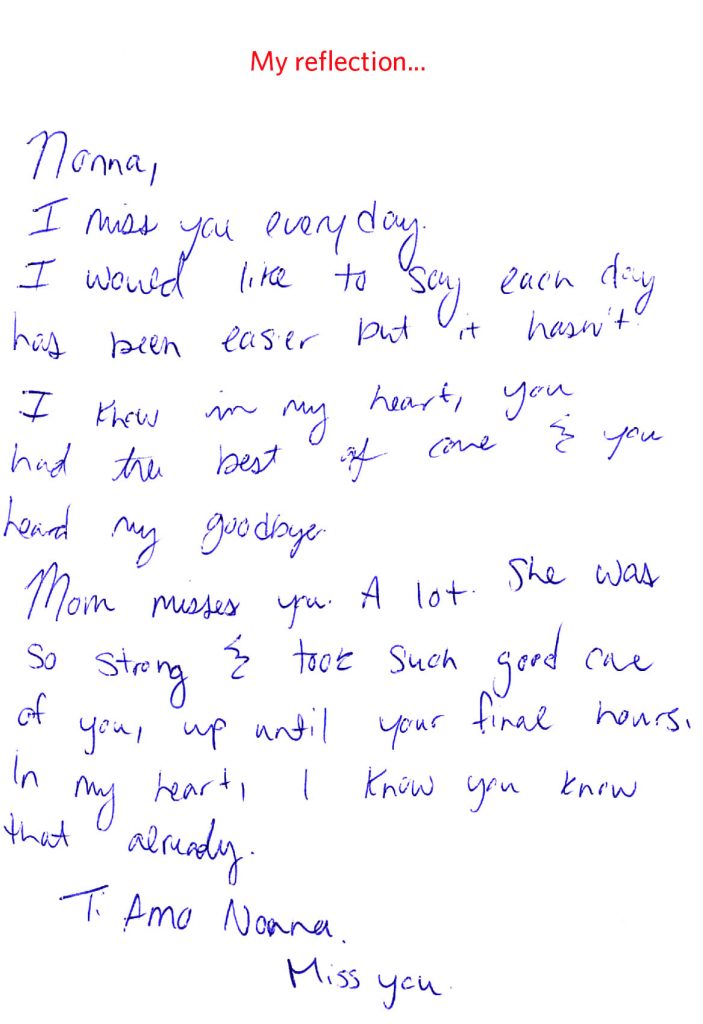 My reflection...
Nonna,
I miss you everyday.
I would like to say each day
has been easier but it hasn't.
I know in my heart, you
had the best of care & you
heard my goodbye.
Mom misses you. A lot. She was
so strong & took such good care
of you, up until your final hours.
In my heart, I know you know
that already.
Ti Amo Nonna.
Miss you.